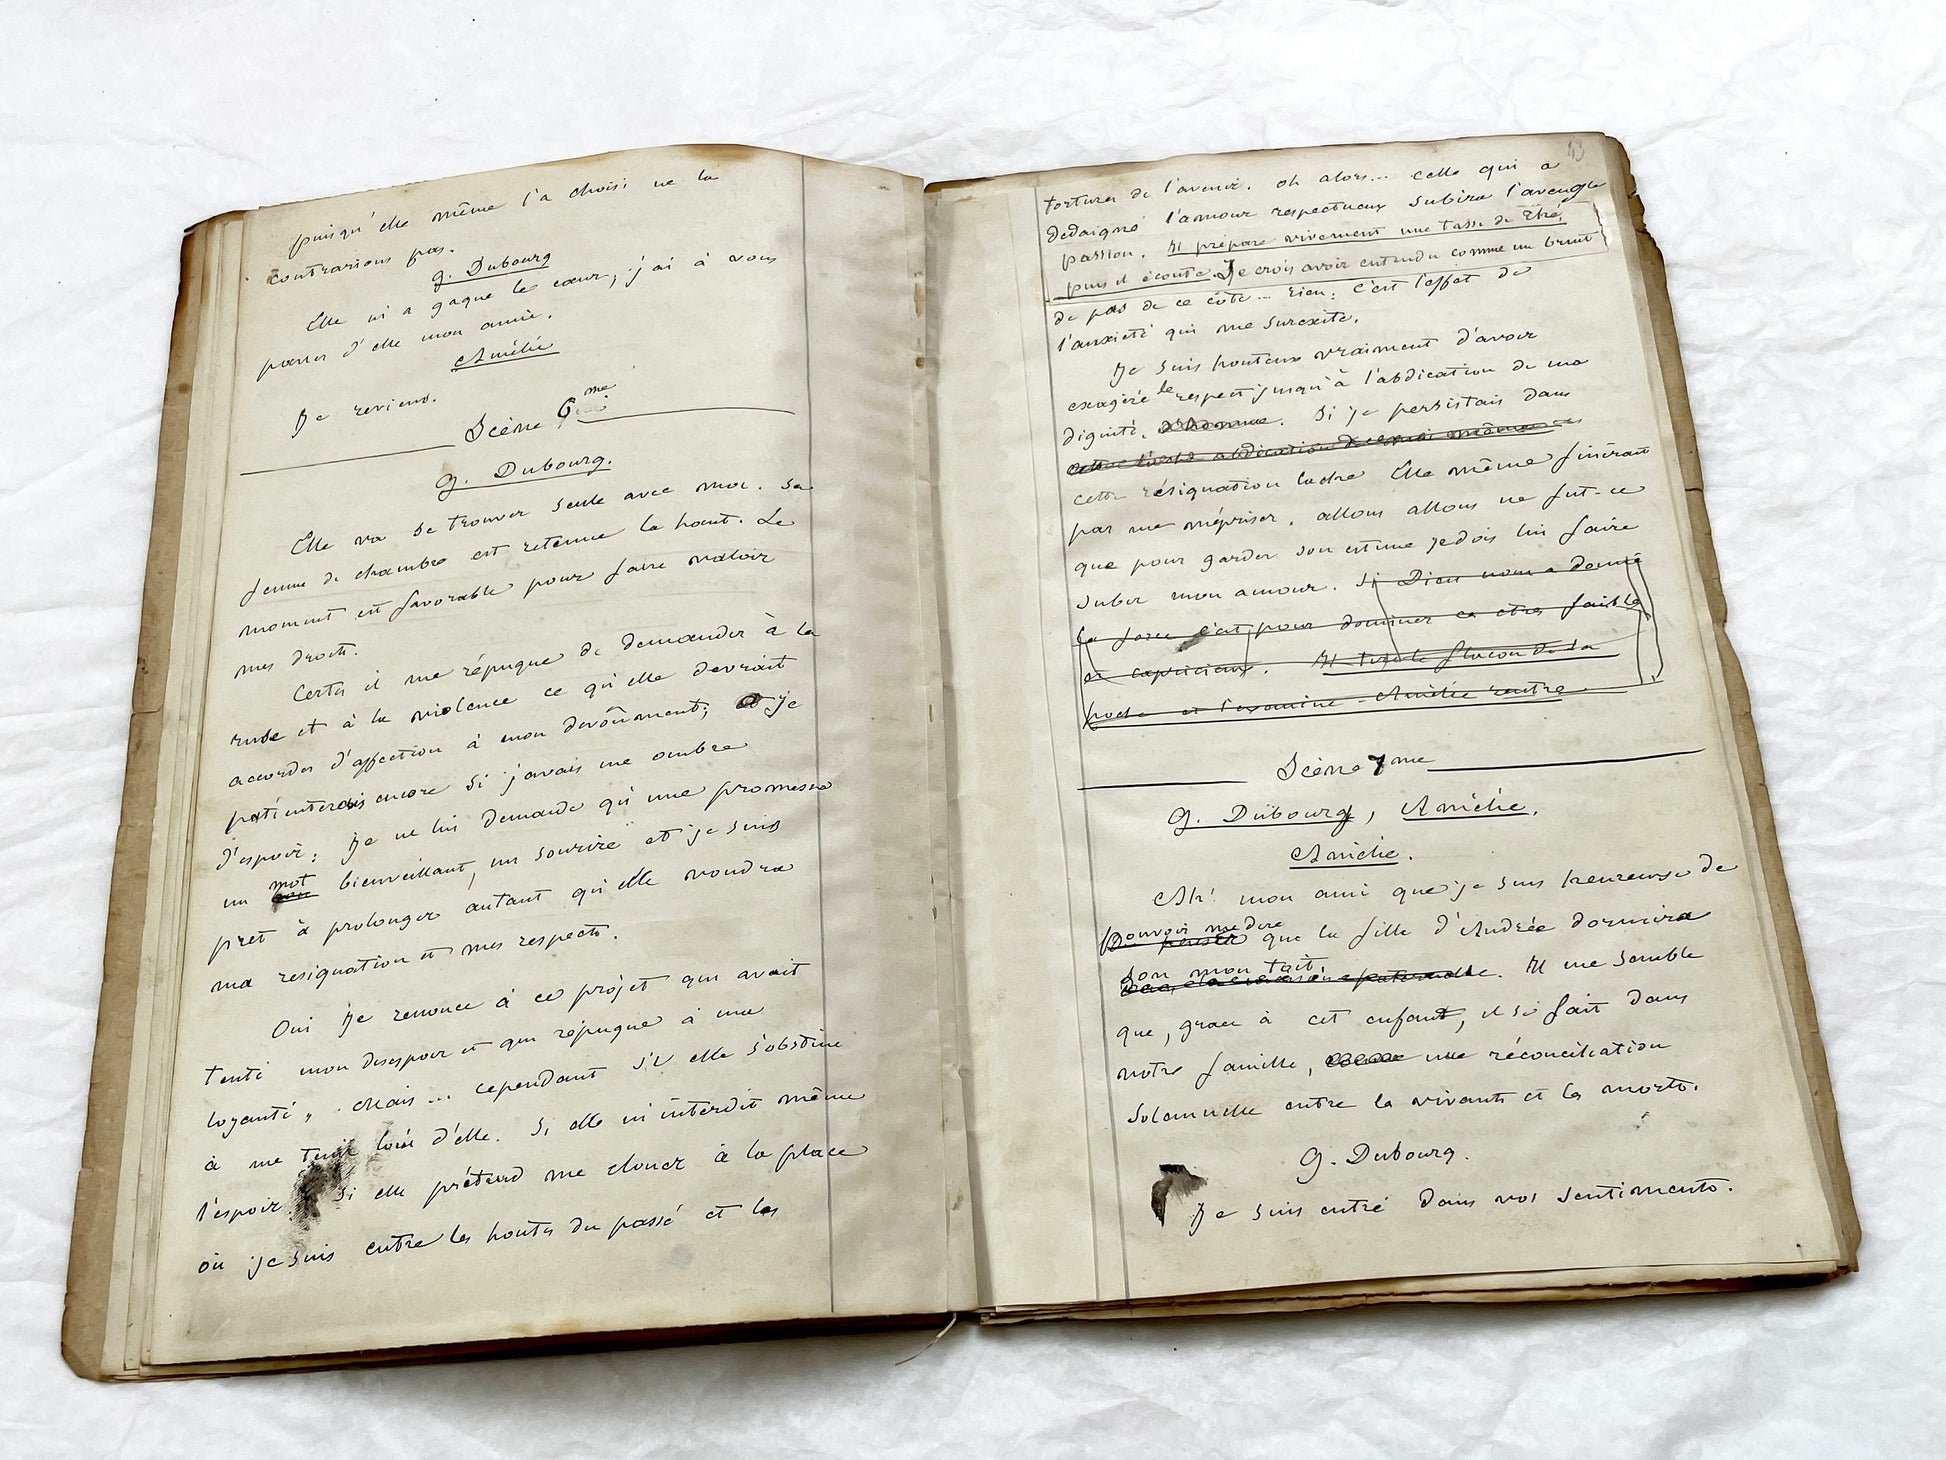 puisqu'elle même l'a choisi ne la
contrarions pas.
G. Dubourg
Elle m'a gagné le cœur; j'ai à vous
parler d'elle mon amie.
Amélie
Je reviens.
Scène 6me
G. Dubourg.
Elle va se trouver seule avec moi. Sa
femme de chambre est retenue la haut. Le
moment est favorable pour faire valoir
mes droits.
Certes il me répugne de demander à la
ruse et à la violence ce qu'elle devrait
accorder d'affection à mon devoûment; je
patienterais encore si j'avais une ombre
d'espoir; Je ne lui demande qu'une promesse
un mot bienveillant, un sourire et je suis
pret à prolonger autant qu'elle voudra
ma resignation et mes respects.
Oui Je renonce à ce projet qui avait
tenté mon desespoir et qui répugne à ma
loyauté, Mais... cependant si elle s'obstine
à me tenir loin d'elle. Si elle m'interdit même
l'espoir. Si elle prétend me clouer à la place
où je suis entre les hontes du passé et les
43
tortures de l'avenir. oh alors... celle qui a
dedaigné l'amour respectueux subira l'aveugle
passion. Il prépare vivement une tasse de thé,
puis il écoute. Je crois avoir entendu comme un bruit
de pas de ce côté... Rien; c'est l'effet de
l'anxieté qui me surexcite.
Je suis honteux vraiment d'avoir
exagéré le respect jusqu'à l'abdication de ma
dignité. d'homme. Si je persistais dans
cette abdication de moi même
cette résignation ladre Elle même finirait
par me mépriser. allons allons ne fut-ce
que pour garder son estime je dois lui faire
subir mon amour. Si Dieu nous a donné
la force c'est pour dominer ces êtres faibles
et capricieux. Il tire le flacon de sa
poche et l'examine - Amélie rentre
Scène 7me
G. Dubourg, Amélie.
Amélie.
Ah! mon ami que je suis heureuse de
pouvoir me dire
penser que la fille d'Andrée dormira
sous mon toit
dans la maison paternelle. Il me semble
que, grace à cet enfant, il se fait dans
notre famille, une réconciliation
solennelle entre les vivants et les morts.
G. Dubourg.
Je suis entré dans vos sentiments.